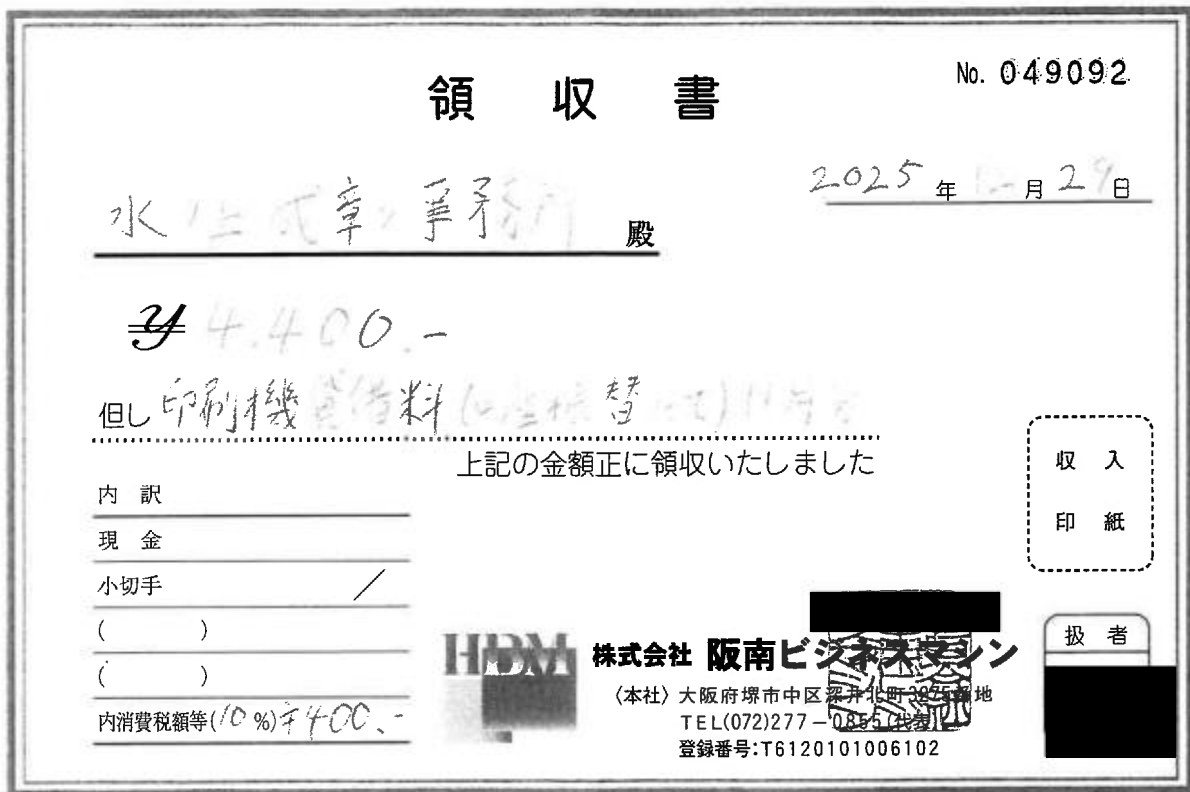 領収書
No. 049092
2025年 月29日
水 章 事務 殿
¥ 4.400.-
但し 印刷機 料 替
上記の金額正に領収いたしました
収入
印紙
内訳
現金
小切手 /
( )
( )
内消費税額等(10%)¥400.-
HBM
株式会社 阪南ビジネスマシン
〈本社〉大阪府堺市中区深井北町 地
TEL(072)277-0855(代表)
登録番号:T6120101006102
扱者